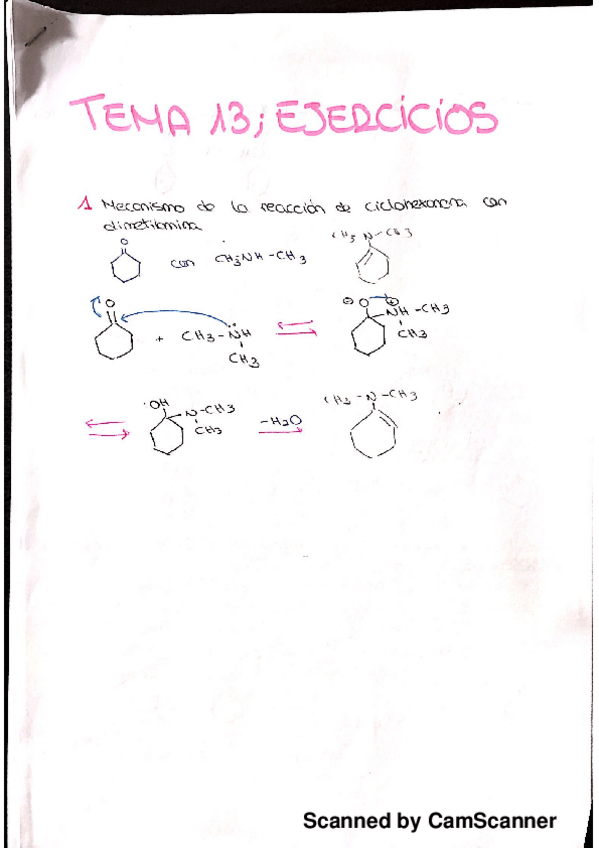 TEMA 13; EJERCICIOS
1 Mecanismo de la reacción de ciclohexanona con
dimetilamina
O
con CH3NH-CH3
CH3 N-CH3
O
+ CH3-NH
CH3
⊖ O ⊕ NH-CH3
CH3
OH
N-CH3
CH3
-H2O
CH3-N-CH3
Scanned by CamScanner